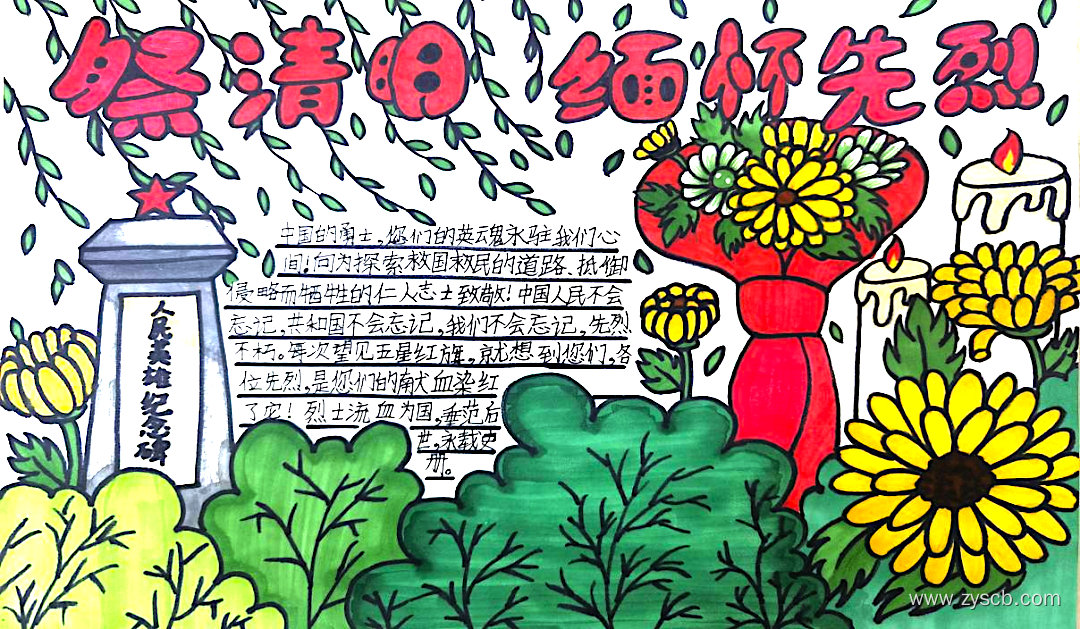 祭清明 缅怀先烈
中国的勇士,您们的英魂永驻我们心
间!向为探索救国救民的道路、抵御
侵略而牺牲的仁人志士致敬!中国人民不会
忘记,共和国不会忘记,我们不会忘记,先烈
不朽。每次望见五星红旗,就想到您们,各
位先烈,是您们的献血染红
了它!烈士流血为国,垂范后
世,永载史
册。
人民英雄纪念碑
www.zyscb.com